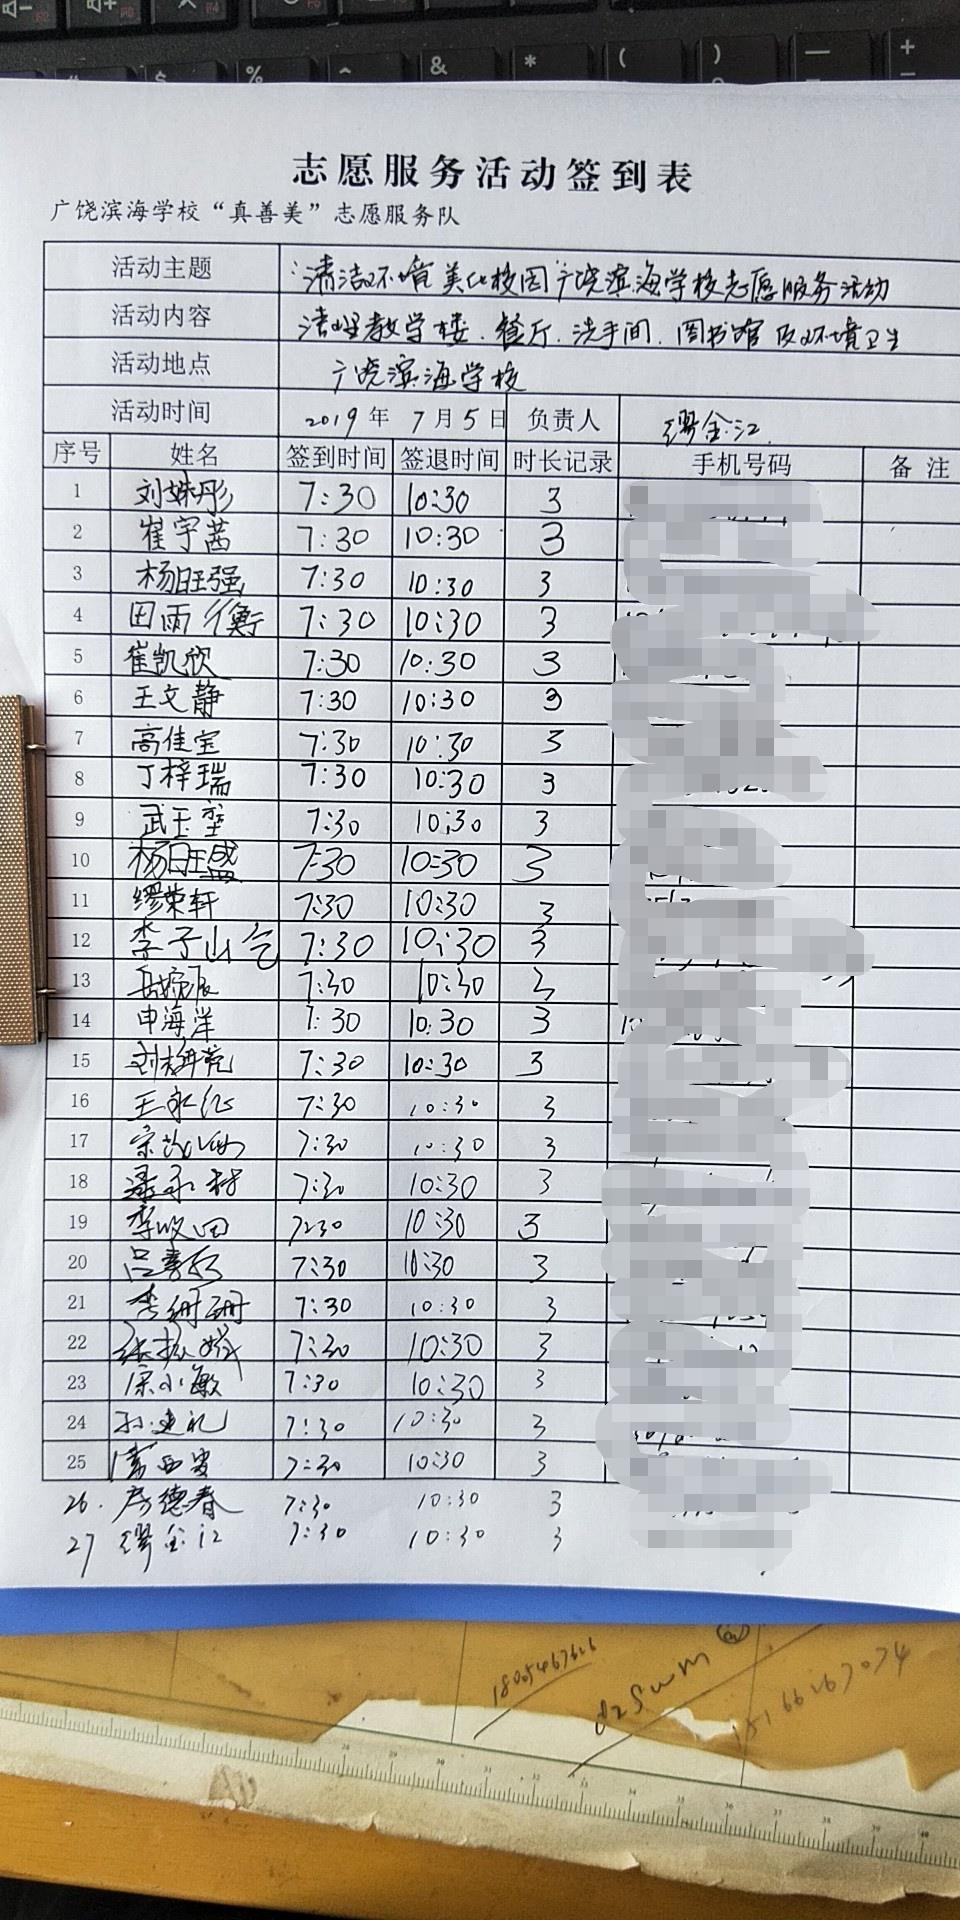 志愿服务活动签到表
广饶滨海学校“真善美”志愿服务队
活动主题 清洁环境 美化校园 广饶滨海学校志愿服务活动
活动内容 清理教学楼、餐厅、洗手间、图书馆及环境卫生
活动地点 广饶滨海学校
活动时间 2019年 7月5日 负责人 缪金江
序号 姓名 签到时间 签退时间 时长记录 手机号码 备注
1 刘姝彤 7:30 10:30 3
2 崔宇茜 7:30 10:30 3
3 杨旺强 7:30 10:30 3
4 田雨衡 7:30 10:30 3
5 崔凯欣 7:30 10:30 3
6 王文静 7:30 10:30 3
7 高佳宝 7:30 10:30 3
8 丁梓瑞 7:30 10:30 3
9 武玉 7:30 10:30 3
10 杨旺盛 7:30 10:30 3
11 缪荣轩 7:30 10:30 3
12 李子 7:30 10:30 3
13 7:30 10:30 3
14 申海洋 7:30 10:30 3
15 刘 7:30 10:30 3
16 王 7:30 10:30 3
17 宗 7:30 10:30 3
18 7:30 10:30 3
19 李 7:30 10:30 3
20 吕 7:30 10:30 3
21 李珊珊 7:30 10:30 3
22 张 7:30 10:30 3
23 宋小敏 7:30 10:30 3
24 孙建礼 7:30 10:30 3
25 7:30 10:30 3
26. 房德春 7:30 10:30 3
27 缪金江 7:30 10:30 3
18005467626
15166267074